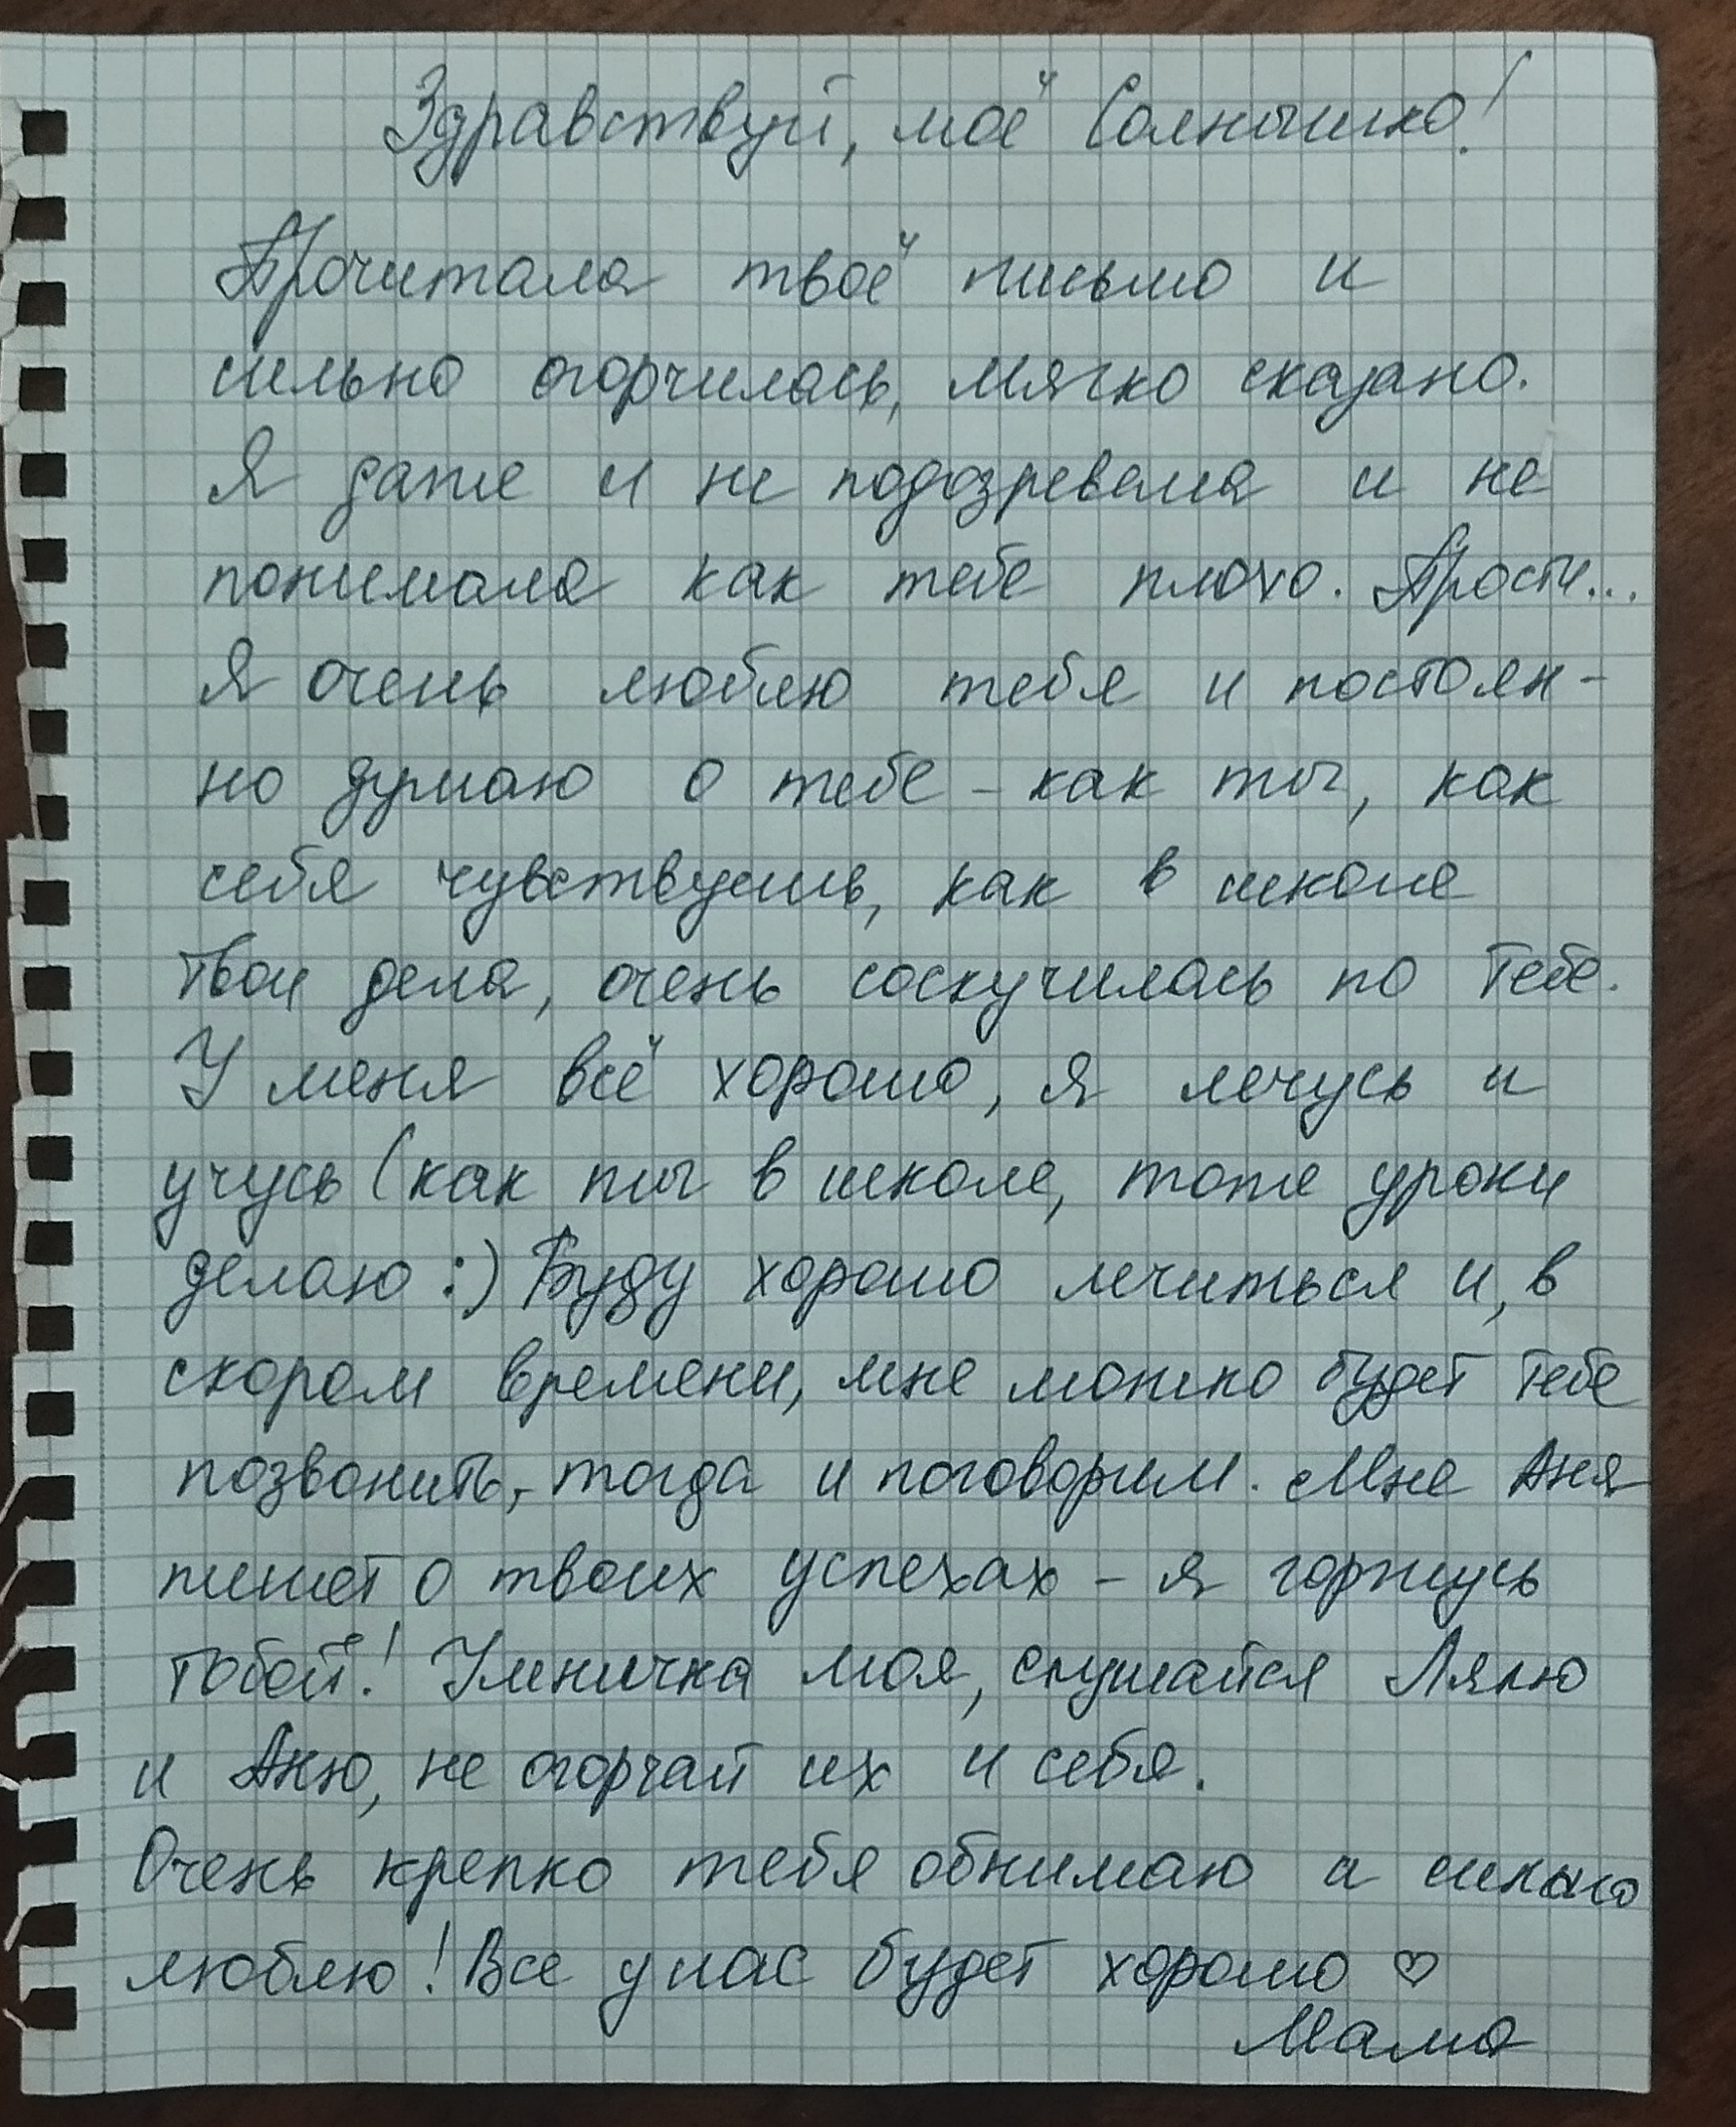 Здравствуй, моё Солнышко!
Прочитала твоё письмо и
сильно огорчилась, мягко сказано.
Я даже и не подозревала и не
понимала как тебе плохо. Прости...
Я очень люблю тебя и постоян-
но думаю о тебе - как ты, как
себя чувствуешь, как в школе
твои дела, очень соскучилась по тебе.
У меня всё хорошо, я лечусь и
учусь (как ты в школе, тоже уроки
делаю :) Буду хорошо лечиться и, в
скором времени, мне можно будет тебе
позвонить, тогда и поговорим. Мне Аня
пишет о твоих успехах - я горжусь
тобой! Умничка моя, слушайся Лялю
и Аню, не огорчай их и себя.
Очень крепко тебя обнимаю и сильно
люблю! Все у нас будет хорошо ♡
Мама